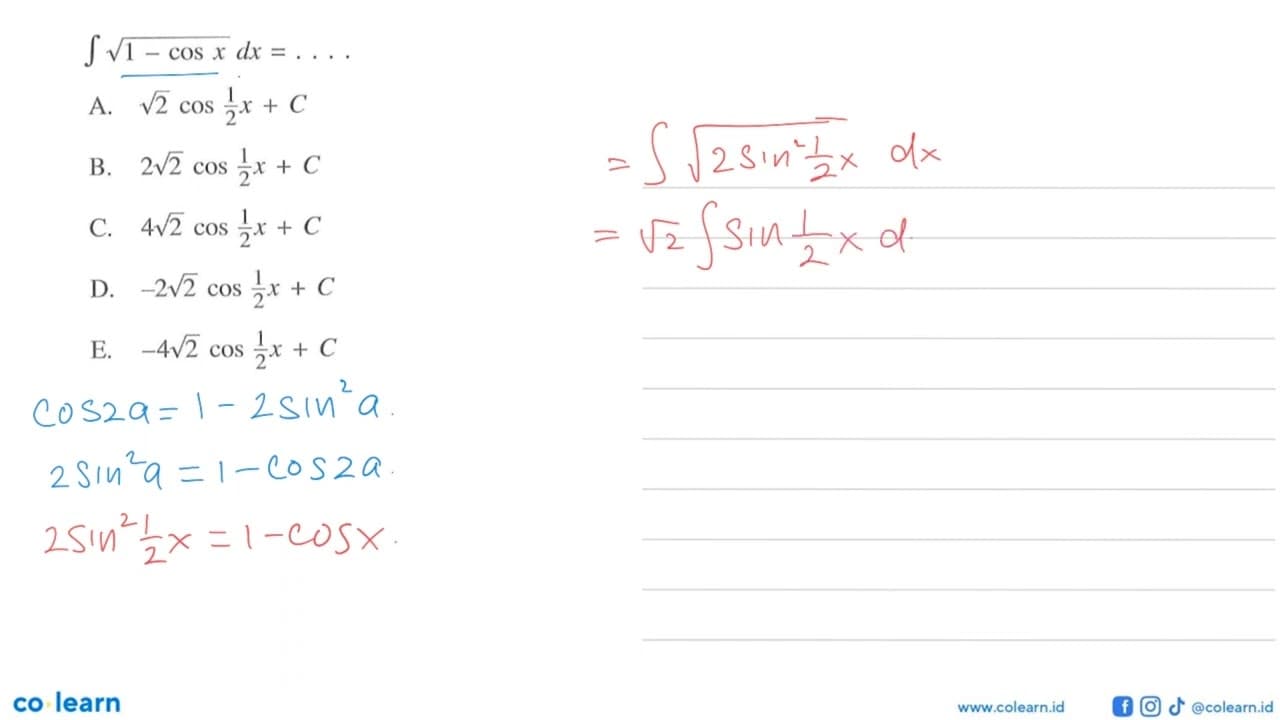 ∫ √(1 – cos x) dx = . . . .
A. √2 cos 1/2 x + C
B. 2√2 cos 1/2 x + C
C. 4√2 cos 1/2 x + C
D. –2√2 cos 1/2 x + C
E. –4√2 cos 1/2 x + C
cos2a = 1 - 2sin²a.
2sin²a = 1 - cos2a.
2sin² 1/2 x = 1 - cosx.
= ∫ √(2sin² 1/2 x) dx
= √2 ∫ sin 1/2 x d
co·learn
www.colearn.id
@colearn.id